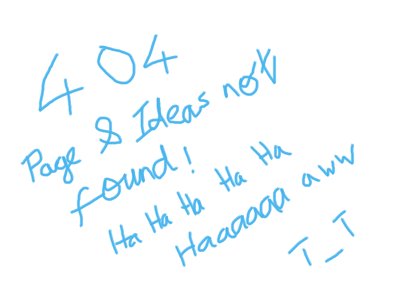 404
Page & Ideas not
found!
Ha Ha Ha Ha Ha
Haaaaaa aww
T_T